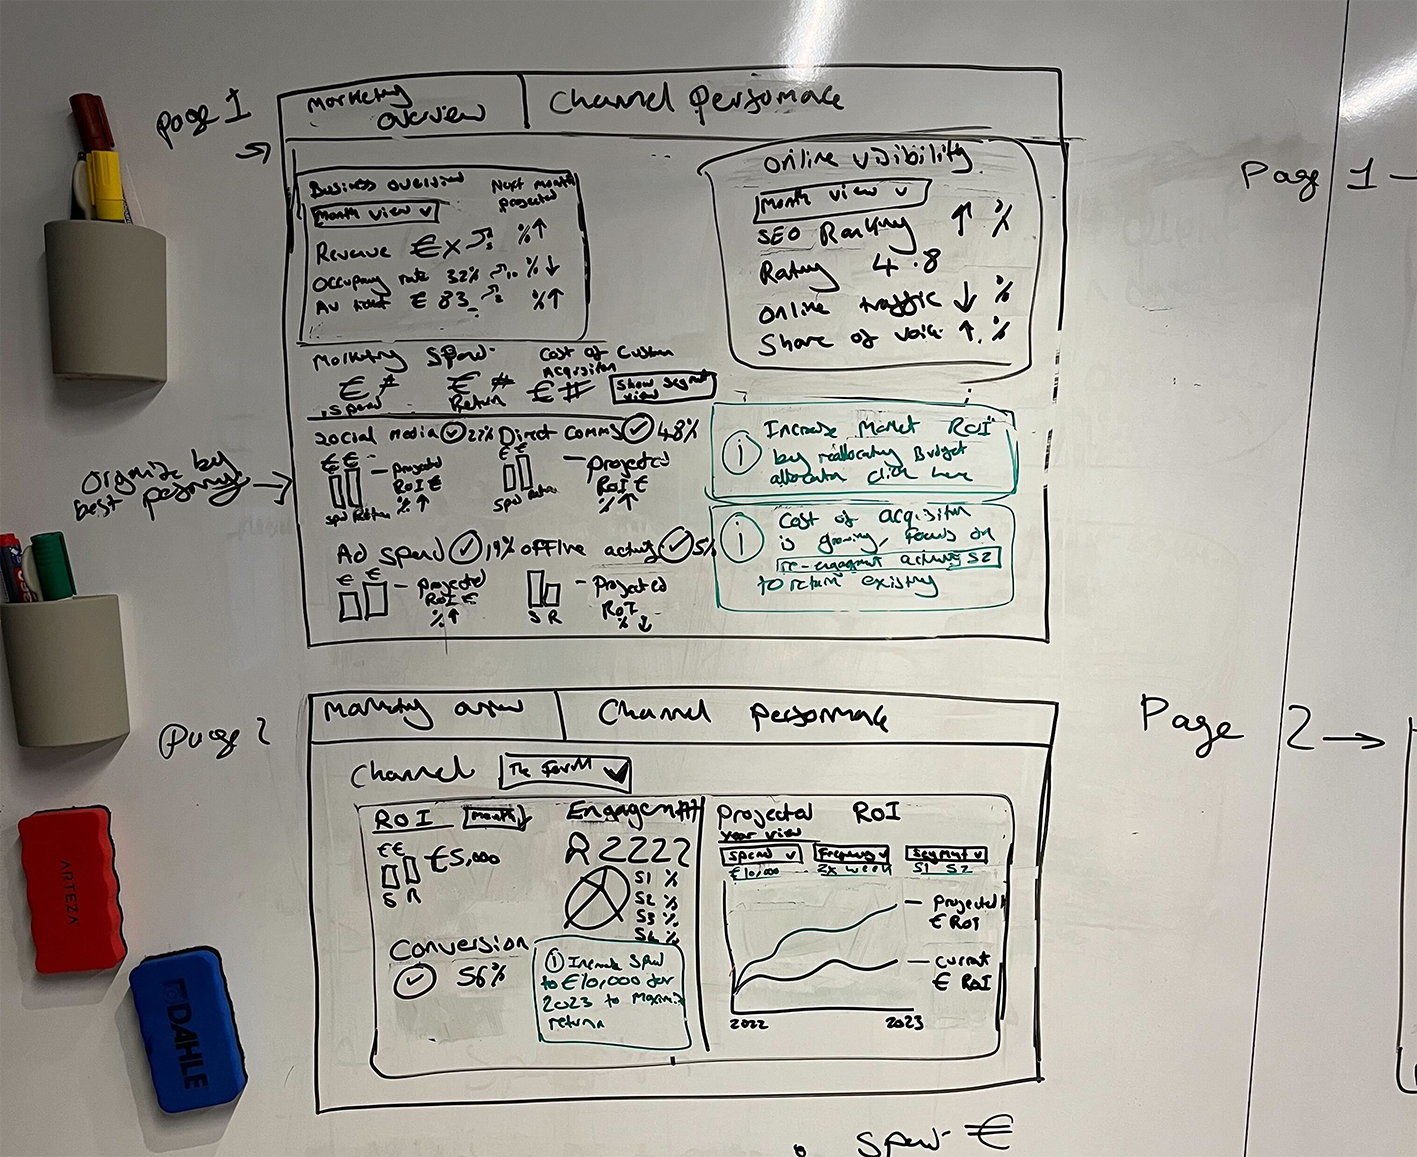 Page 1
Marketing overview
Channel Performace
Business overview
Next month projected
Month view
Revenue € x % ↑
Occupany rate 32% % ↓
Av ticket € 83 % ↑
Online visibility
Month view
SEO Ranking ↑ %
Rating 4.8
Online traffic ↓ %
Share of voice ↑ %
Marketing Spend
€ #
Spend
€ #
Return
Cost of Custom
Acqisiton
€ #
Show segment
view
organize by
best
Social media 27%
€ €
- projected
RoI €
% ↑
Spd Return
Direct Comms 48%
€ €
- projected
RoI €
% ↑
Spd Return
Ad spend 19%
€ €
- projected
RoI €
% ↑
offline activity 5%
S R
- projected
RoI
% ↓
i Increase Market RoI
by reallocating Budget
allocation click here
i Cost of acqisiton
is growing, focus on
re-engagment activity S2
to return existing
Page 2
Marketing
Channel Performace
Channel
RoI
Month
€ €
€5,000
S R
Conversion
56%
Engagement
2222
S1 %
S2 %
S3 %
S4 %
i Increase Spend
to €10,000 for
2023 to Maximize
return
Projected RoI
Year view
Spend
€10,000
Frequency
2x week
Segment
S1 S2
- Projected
€ RoI
- Current
€ RoI
2022
2023
Page 1 -
Page 2 →
Spend €
ARTEZA
DAHLE